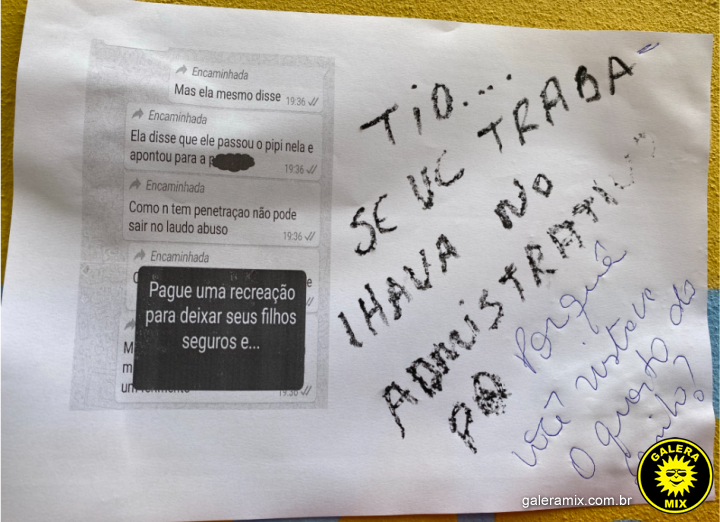 Encaminhada
Mas ela mesmo disse 19:36
Encaminhada
Ela disse que ele passou o pipi nela e
apontou para a p
19:36
Encaminhada
Como n tem penetraçao não pode
sair no laudo abuso
19:36
Encaminhada
Pague uma recreação
para deixar seus filhos
seguros e...
TiO...
SE VC TRABA-
lHAVA NO
ADMiSTRATIVO
PQ Porquê
você
O quarto do
GALERA
MIX
galeramix.com.br